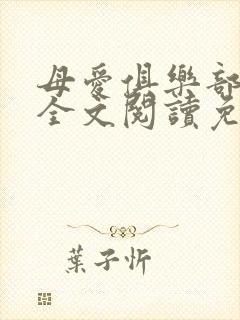 母愛俱樂部
全文閱讀免
葉子忻